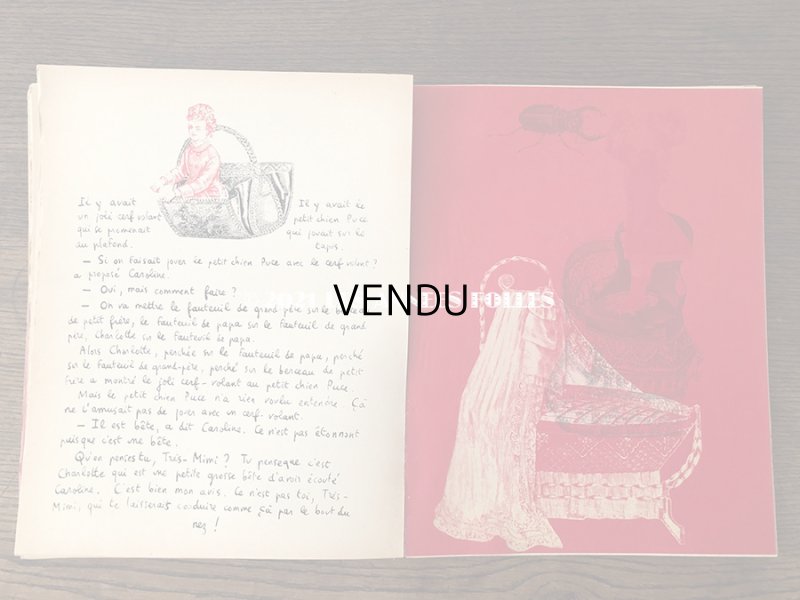 Il y avait
un joli cerf volant
qui se promenait
au plafond.
Il y avait le
petit chien Puce
qui jouait sur le
tapis.
— Si on faisait jouer le petit chien Puce avec le cerf volant ?
a proposé Caroline.
— Oui, mais comment faire ?
— On va mettre le fauteuil de grand père sur le berceau
de petit frère, le fauteuil de papa sur le fauteuil de grand
père, Charlotte sur le fauteuil de papa.
Alors Charlotte, perchée sur le fauteuil de papa, perché
sur le fauteuil de grand-père, perché sur le berceau de petit
frère a montré le joli cerf-volant au petit chien Puce.
Mais le petit chien Puce n'a rien voulu entendre. Ça
ne l'amusait pas de jouer avec un cerf-volant.
— Il est bête, a dit Caroline. Ce n'est pas étonnant
puisque c'est une bête.
Qu'en penses tu, Très-Mimi ? Tu penses que c'est
Charlotte qui est une petite grosse bête d'avoir écouté
Caroline. C'est bien mon avis. Ce n'est pas toi, Très-
Mimi, qui te laisserais conduire comme ça par le bout du
nez !
VENDU
2021 FOLLES